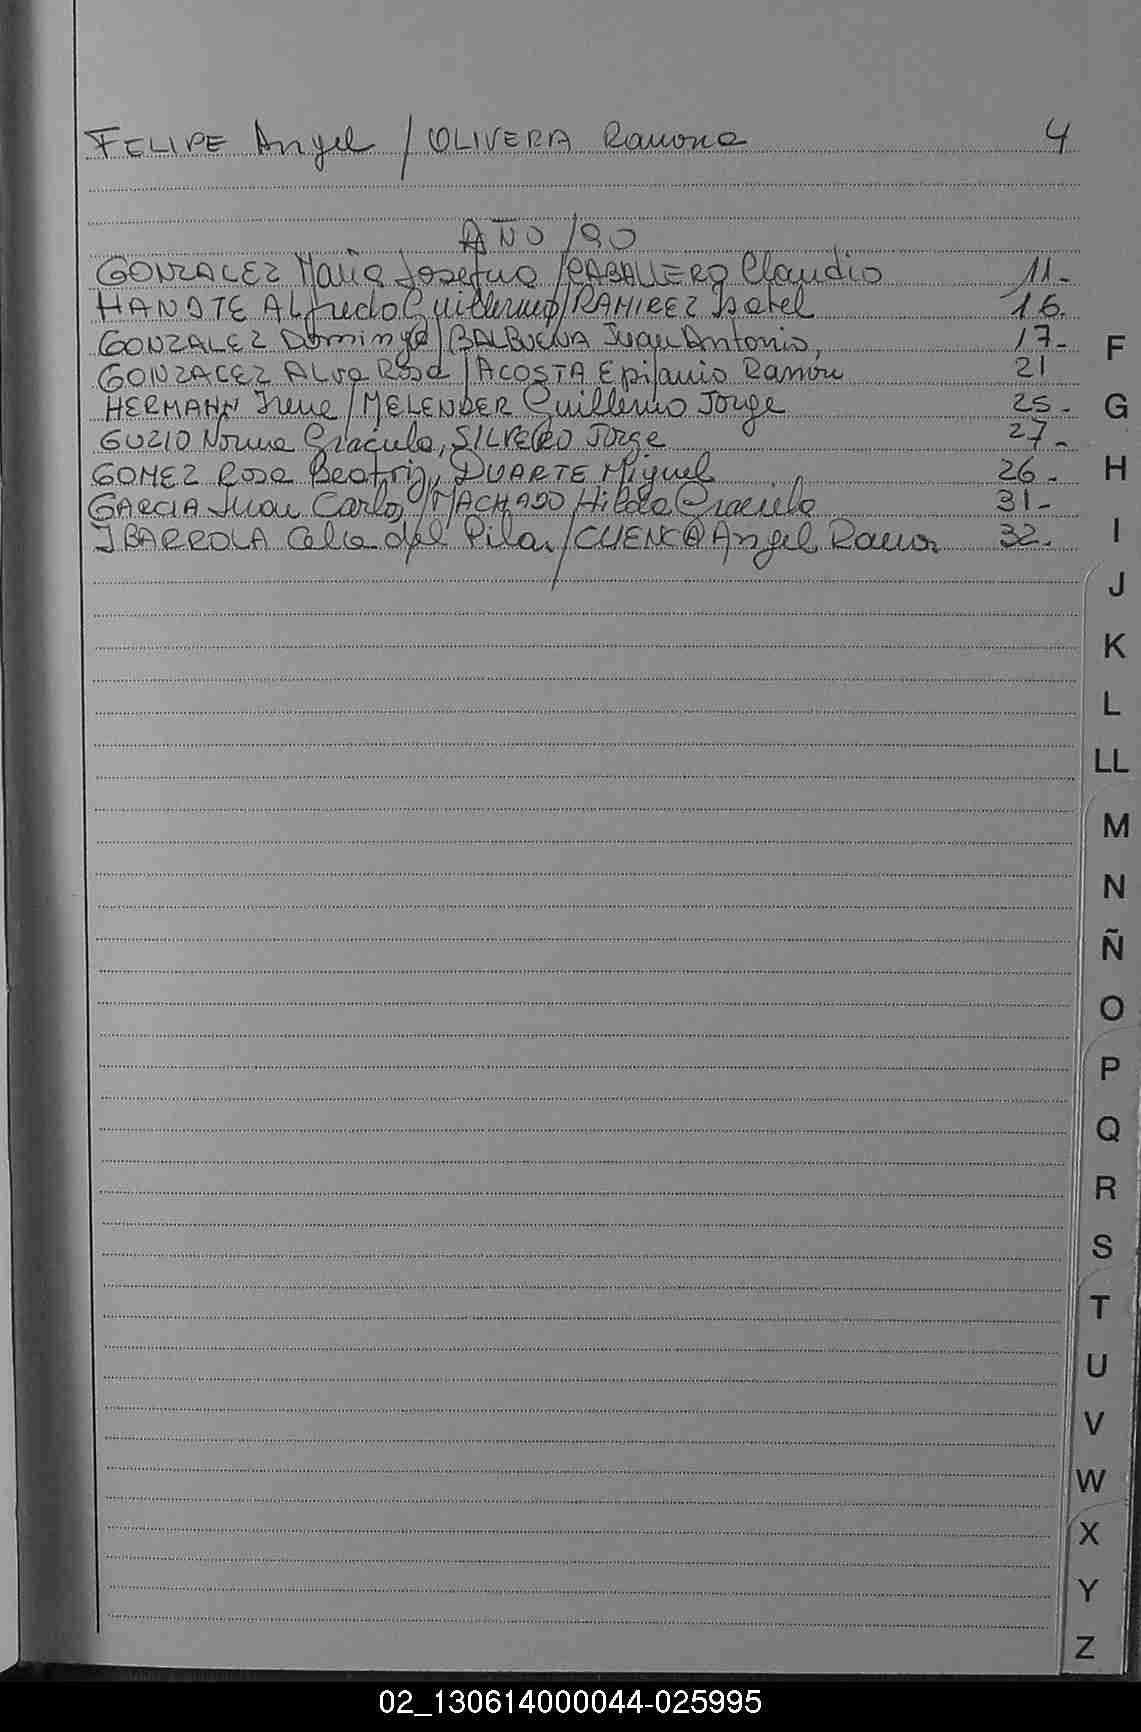 FELIPE Angel / OLIVERA Ramona 4
AÑO / 90
GONZALEZ Maria Josefina / CABALLERO Claudio 11.-
Alfredo Guillermo / RAMIREZ Isabel 16.
GONZALEZ Domingo / BALBUENA Juan Antonio, 17.-
GONZALEZ Alva Rosa / ACOSTA Epifanio Ramón 21
HERMANN Irene / MELENDER Guillermo Jorge 25.-
GUZIO Norma Graciela, SILVERO Jorge 27.-
GOMEZ Rosa Beatriz, DUARTE Miguel 26.-
GARCIA Juan Carlos / MACHADO Hilda Graciela 31.-
IBARROLA Celia del Pilar / CUENCA Angel Ramon 32.-
F
G
H
I
J
K
L
LL
M
N
Ñ
O
P
Q
R
S
T
U
V
W
X
Y
Z
02_130614000044-025995